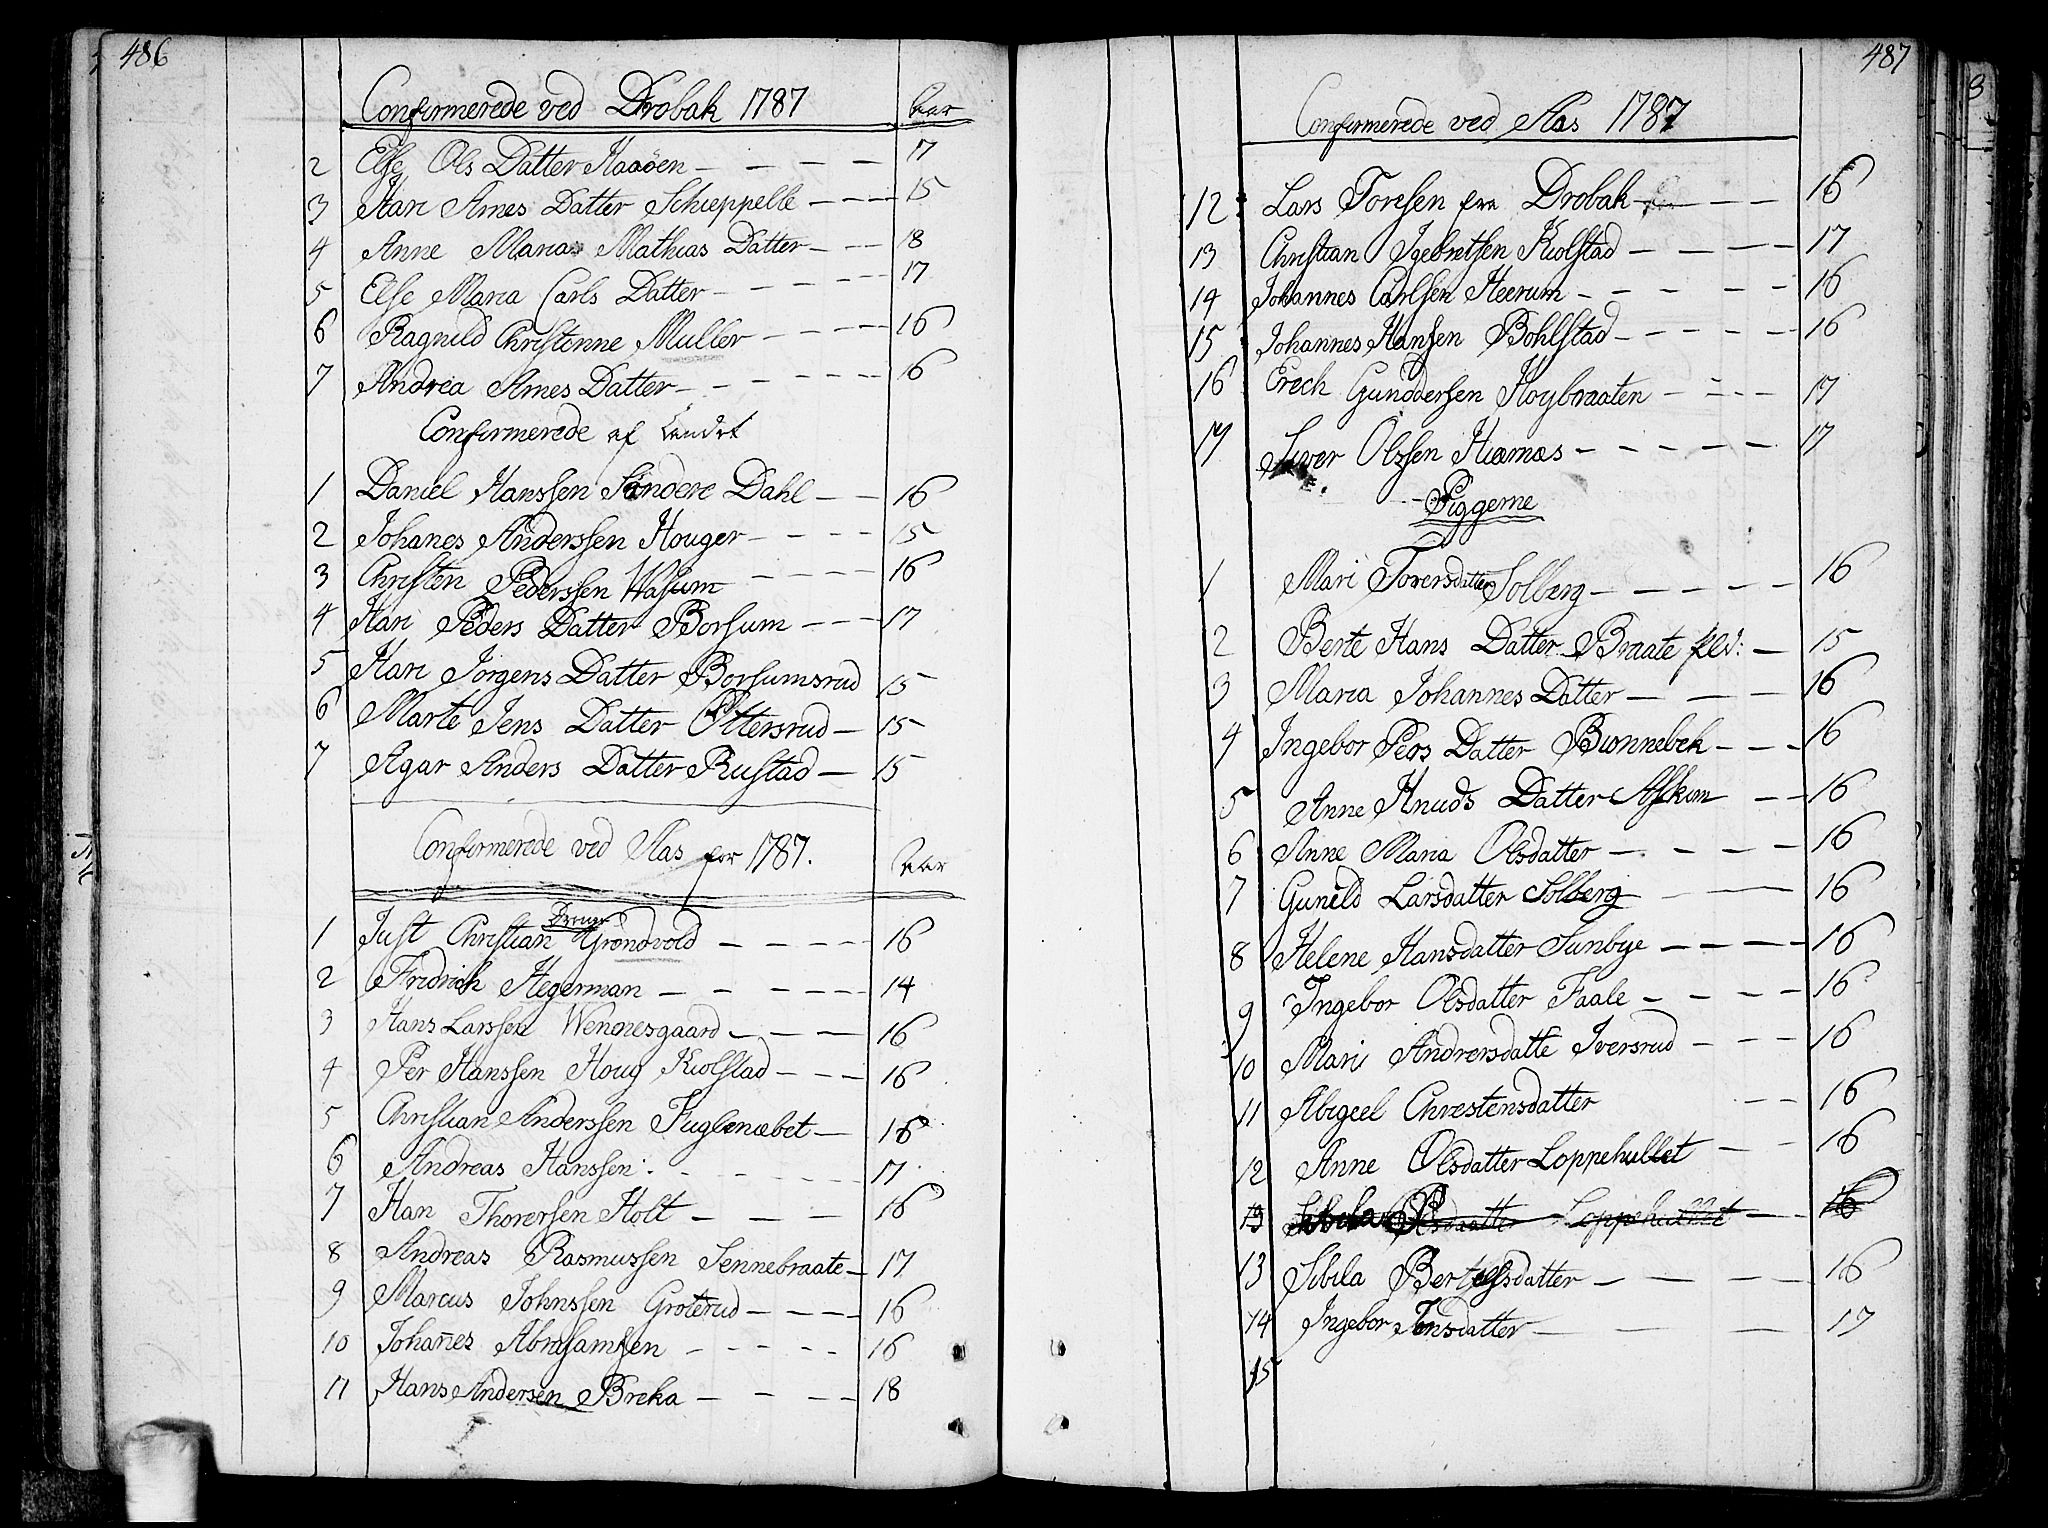 486
Confirmerede ved Drobak 1787 Aar
2 Else Ols Datter Haaöen - - - - 17
3 Kari Arnes Datter Schieppelle - - - 15
4 Anne Maria Mathias Datter - - - 18
5 Else Maria Carls Datter - - - - 17
6 Ragnild Christinne Muller - - - - 16
7 Andrea Arnes Datter - - - - 16
Confirmerede af Landet
1 Daniel Hanssen Söndere Dahl - - 16
2 Johanes Anderssen Houger - - - - 15
3 Christen Pederssen Wassum - - - - 16
4 Kari Peders Datter Borsum - - - 17
5 Kari Jörgens Datter Borsumsrud 15
6 Marte Jens Datter Ottersrud - 15
7 Agar Anders Datter Rustad - 15
Confirmerede ved Aas for 1787. Aar
Drenge
1 Just Christian Gröndvold - - - - 16
2 Fridrich Hegerman - - - - 14
3 Hans Larssen Wennesgaard - - - 16
4 Per Hanssen Houg Kiolstad - - - 16
5 Christian Anderssen Fuglenæbet - 16
6 Andreas Hanssen - - - - 17
7 Han Thorersen Holt - - - 16
8 Andreas Rasmussen Sennebraate - 17
9 Marcus Johnssen Groterud - - - - 16
10 Johan̄es Abrahamsen - - - - - 16
11 Hans Andersen Breka - - - 18
487
Confirmerede ved Aas 1787
12 Lars Toresen fra Drobak - - - 16
13 Christian Igebretsen Kiolstad - - - - 17
14 Johannes Carlsen Heerum - - - - - 16
15 Johannes Hansen Bohlstad - - - - - 16
16 Erech Gunddersen Hoybraaten - - - - 17
17 Siver Olssen Kiærnæs - - - - - 17
Piggerne
1 Mari Torersdatter Solberg - - - - - 16
2 Berte Hans Datter Braate - 15
3 Maria Johannes Datter - - - 16
4 Ingebor Pers Datter Bunnebek - - - 16
5 Anne Knuds Datter Askim - - 16
6 Anne Maria Olsdatter - - - - 16
7 Gunild Larsdatter Solberg - - 16
8 Helene Hansdatter Sunbye - - - - 16
9 Ingebor Olsdatter Faale - - - - 16
10 Mari Andrersdatte Iversrud - - - 16
11 Abigeel Chrestensdatter - - 16
12 Anne Olsdatter Loppehullet - - 16
13 Loppehullet - 16
13 Sibila Bertelsdatter - - - - 16
14 Ingebor Jensdatter - - - 17
15